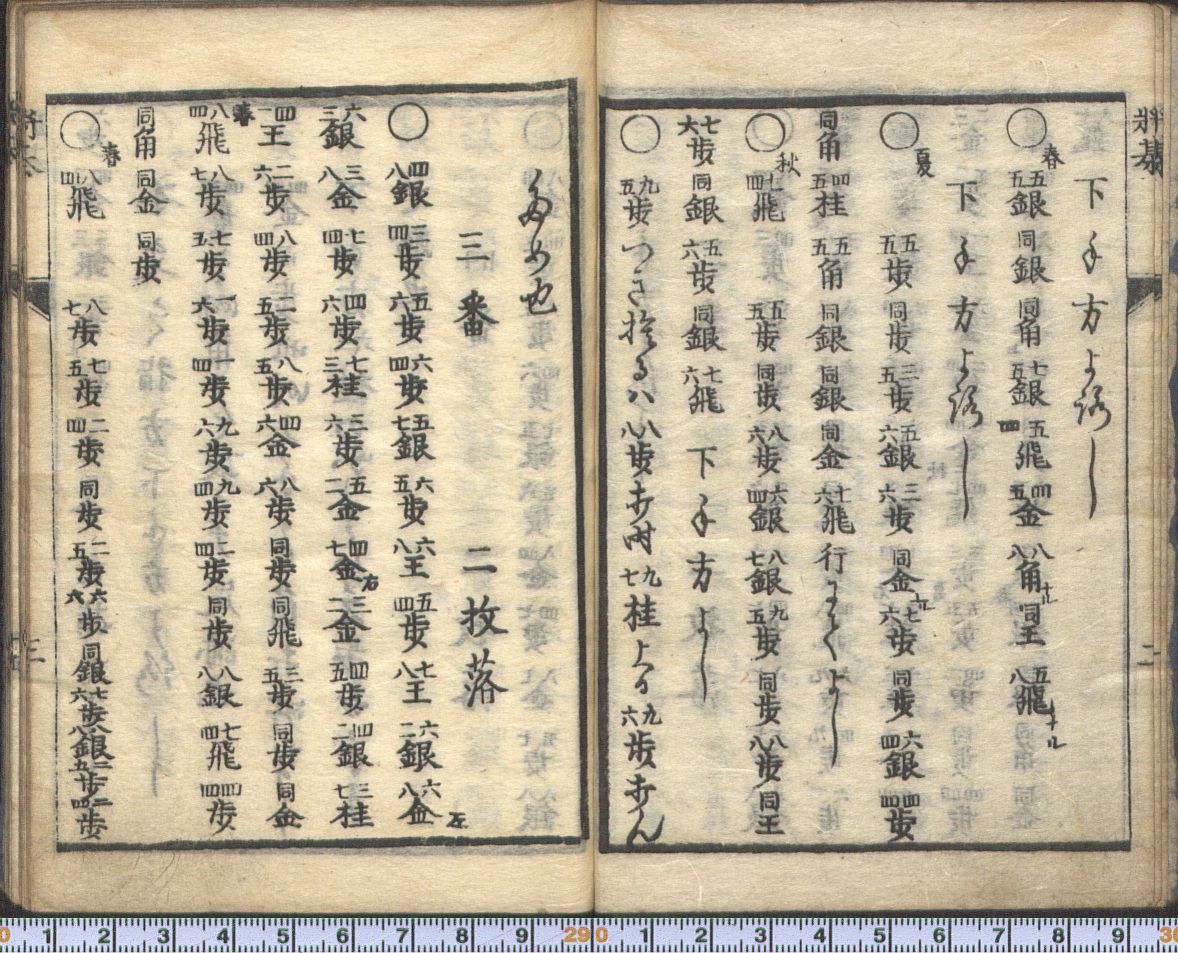 下手方よろし
○春 五五銀 同銀 同角 七五銀 五四飛 四五金 八八角ナル 同王 五八飛ナル
下手方よろし
○夏 五五歩 同歩 三五歩 五六銀 三六歩 同金 七六歩 同歩 六四銀 四四歩
同角 四五桂 五五角 同銀 同銀 同金 七六飛 行にてよし
○秋 七四飛 五五歩 同歩 八六歩 六四銀 八七銀 九五歩 同歩 八八歩 同王
七六歩 同銀 五六歩 同銀 七六飛 下手方よし
○ 九五歩 つき捨るハ 八八歩 打時 九七桂 よる 九六歩 打ん
ため也
三番 二枚落
○ 四八銀 三四歩 五六歩 六四歩 五七銀 六五歩 六八王 五四歩 七八王 六二銀 六八金左
六三銀 三八金 七四歩 四六歩 七三桂 三六歩 五二金 四七金右 三二金 四五歩 四二銀 三七桂
四一王 二六歩 八四歩 二五歩 八五歩 四六金 八六歩 同歩 同飛 三五歩 同歩 同金
八四飛 春 八七歩 七五歩 一六歩 四歩 九六歩 九四歩 二四歩 同歩 八八銀 七四飛 四四歩
同角 同金 同歩
○春 八四飛 八七歩 七五歩 二四歩 同歩 二五歩 六六歩 同銀 七六歩 八五銀 二二歩 二四歩
将棊
二
三